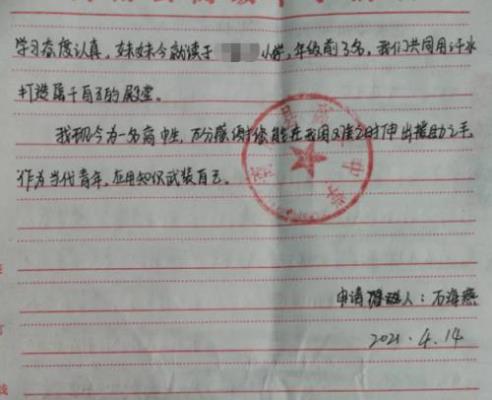 学习态度认真，妹妹今就读于 小学，年级前3名，我们共同用汗水
打造属于自己的殿堂。
我现今为一名高中生，万分感谢您能在我困难之时伸出援助之手，
作为当代青年，应用知识武装自己。
申请 人：石海燕
2021.4.14